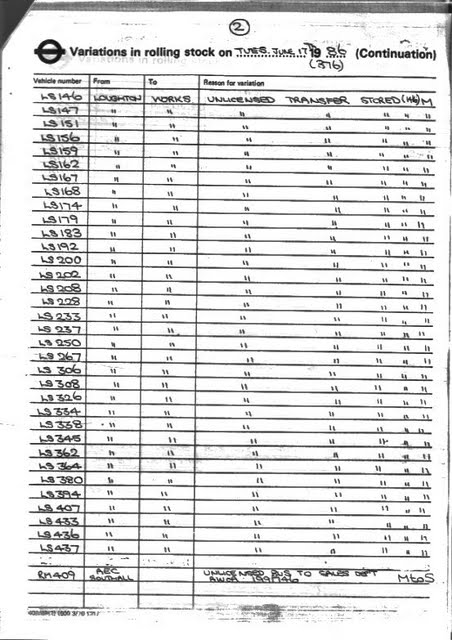 2
Variations in rolling stock on TUES. JUNE 17 19 86 (Continuation)
(376)
Vehicle number From To Reason for variation
LS146 LOUGHTON WORKS UNLICENSED TRANSFER STORED (HB) M
LS147 " " " " " " "
LS151 " " " " " " "
LS156 " " " " " " "
LS159 " " " " " " "
LS162 " " " " " " "
LS167 " " " " " " "
LS168 " " " " " " "
LS174 " " " " " " "
LS179 " " " " " " "
LS183 " " " " " " "
LS192 " " " " " " "
LS200 " " " " " " "
LS202 " " " " " " "
LS208 " " " " " " "
LS228 " " " " " " "
LS233 " " " " " " "
LS237 " " " " " " "
LS250 " " " " " " "
LS267 " " " " " " "
LS306 " " " " " " "
LS308 " " " " " " "
LS326 " " " " " " "
LS334 " " " " " " "
LS338 " " " " " " "
LS345 " " " " " " "
LS362 " " " " " " "
LS364 " " " " " " "
LS380 " " " " " " "
LS394 " " " " " " "
LS407 " " " " " " "
LS433 " " " " " " "
LS436 " " " " " " "
LS437 " " " " " " "
RM409 AEC SOUTHALL UNLICENSED BUS TO SALES DEPT M to S
AWOR